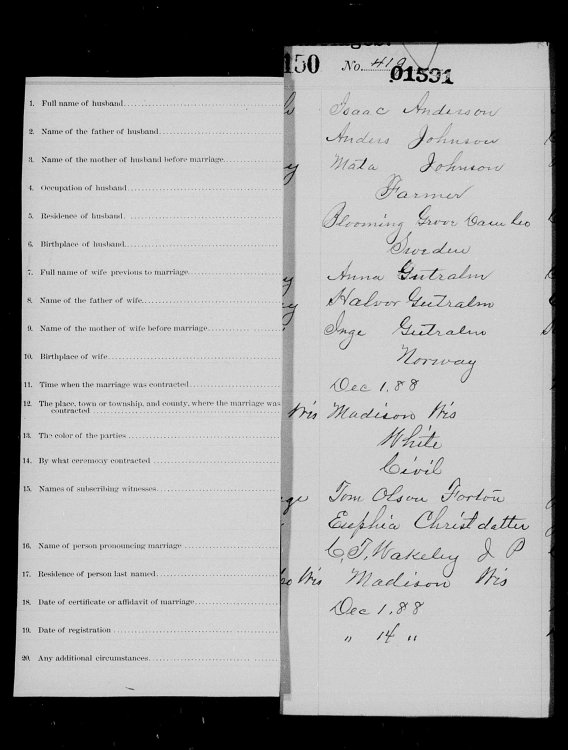 150 No. 419
01531
1. Full name of husband Isaac Anderson
2. Name of the father of husband Anders Johnson
3. Name of the mother of husband before marriage Mata Johnson
4. Occupation of husband Farmer
5. Residence of husband. Blooming Grove Dane Co
6. Birthplace of husband Sweden
7. Full name of wife previous to marriage Anna Gutralm
8. Name of the father of wife Halvor Gutralm
9. Name of the mother of wife before marriage Inge Gutralm
10. Birthplace of wife Norway
11. Time when the marriage was contracted Dec 1, 88
12. The place, town or township, and county, where the marriage was
contracted Wis Madison Wis
13. The color of the parties White
14. By what ceremony contracted Civil
15. Names of subscribing witnesses Tom Olson
Christdatter
16. Name of person pronouncing marriage C. T. Wakeley J P
17. Residence of person last named Wis Madison Wis
18. Date of certificate or affidavit of marriage Dec 1, 88
19. Date of registration " 14 "
20. Any additional circumstances